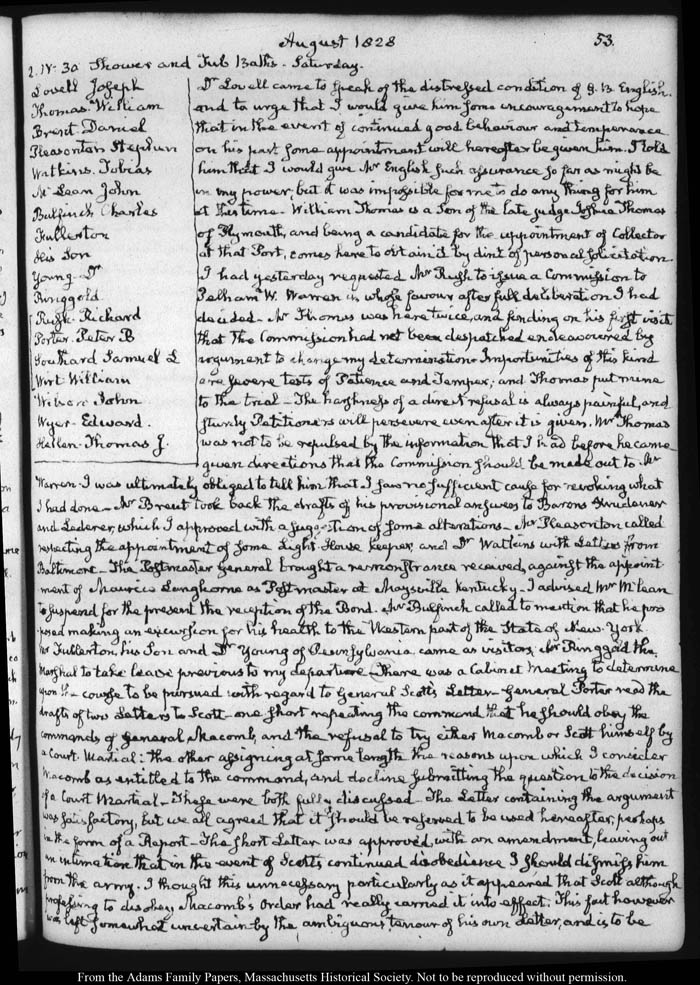 August 1828
53.
2. IV: 30 Shower and Tub Baths. Saturday.
Lovell Joseph
Thomas William
Brent Daniel
Pleasonton Stephen
Watkins. Tobias
Mc Lean John
Bulfinch Charles
Fullerton
His Son
Young Dr
Ringgold
Rush Richard
Porter. Peter B
Southard Samuel L
Wirt William
Wilson John
Wyer Edward.
Hellen Thomas J.
Dr Lovell came to speak of the distressed condition of G. B. English.
and to urge that I would give him some encouragement to hope
that in the event of continued good behaviour and temperance
on his part some appointment will hereafter be given him. I told
him that I would give Mr English such assurance so far as might be
in my power, but it was impossible for me to do any thing for him
at this time. William Thomas is a Son of the late judge Joshua Thomas
of Plymouth, and being a candidate for the appointment of Collector
at that Port, comes here to obtain it by dint of personal solicitation.
I had yesterday requested Mr Rush to issue a Commission to
Pelham W. Warren in whose favour after full deliberation I had
decided. Mr Thomas was here twice, and finding on his first visit
that the Commission had not been despatched endeavoured by
argument to change my determination. Importunities of this kind
are severe tests of Patience and Temper; and Thomas put mine
to the trial. The harshness of a direct refusal is always painful, and
sturdy Petitioners will persevere even after it is given. Mr Thomas
was not to be repulsed by the information that I had before he came
given directions that the Commission should be made out to Mr
Warren. I was ultimately obliged to tell him that I saw no sufficient cause for revoking what
I had done. Mr Brent took back the drafts of his provisional answers to Barons
and Lederer, which I approved with a suggestion of some alterations. Mr Pleasonton called
respecting the appointment of some Light House keeper, and Dr Watkins with Letters from
Baltimore. The Postmaster General brought a remonstrance received, against the appoint-
ment of Maurice Langhorne as Postmaster at Maysville Kentucky. I advised Mr McLean
to suspend for the present the reception of the Bond. Mr Bulfinch called to mention that he pro-
posed making an excursion for his health to the Western part of the State of New-York.
Mr Fullerton, his Son and Dr Young of Pennsylvania came as visitors, Mr Ringgold the
Marshal to take leave previous to my departure. There was a Cabinet Meeting to determine
upon the course to be pursued with regard to General Scott's Letter. General Porter read the
drafts of two Letters to Scott. one short repeating the command that he should obey the
commands of General Macomb, and the refusal to try either Macomb or Scott himself by
a Court Martial: the other assigning at some length the reasons upon which I consider
Macomb as entitled to the command, and decline submitting the question to the decision
of a Court Martial. These were both fully discussed. The Letter containing the argument
was satisfactory, but we all agreed that it should be reserved to be used hereafter, perhaps
in the form of a Report. The short Letter was approved, with an amendment, leaving out
an intimation that in the event of Scott's continued disobedience I should dismiss him
from the army. I thought this unnecessary particularly as it appeared that Scott although
professing to disobey Macomb's Order had really carried it into effect. This fact however
was left somewhat uncertain by the ambiguous tenour of his own Letter, and is to be
From the Adams Family Papers, Massachusetts Historical Society. Not to be reproduced without permission.